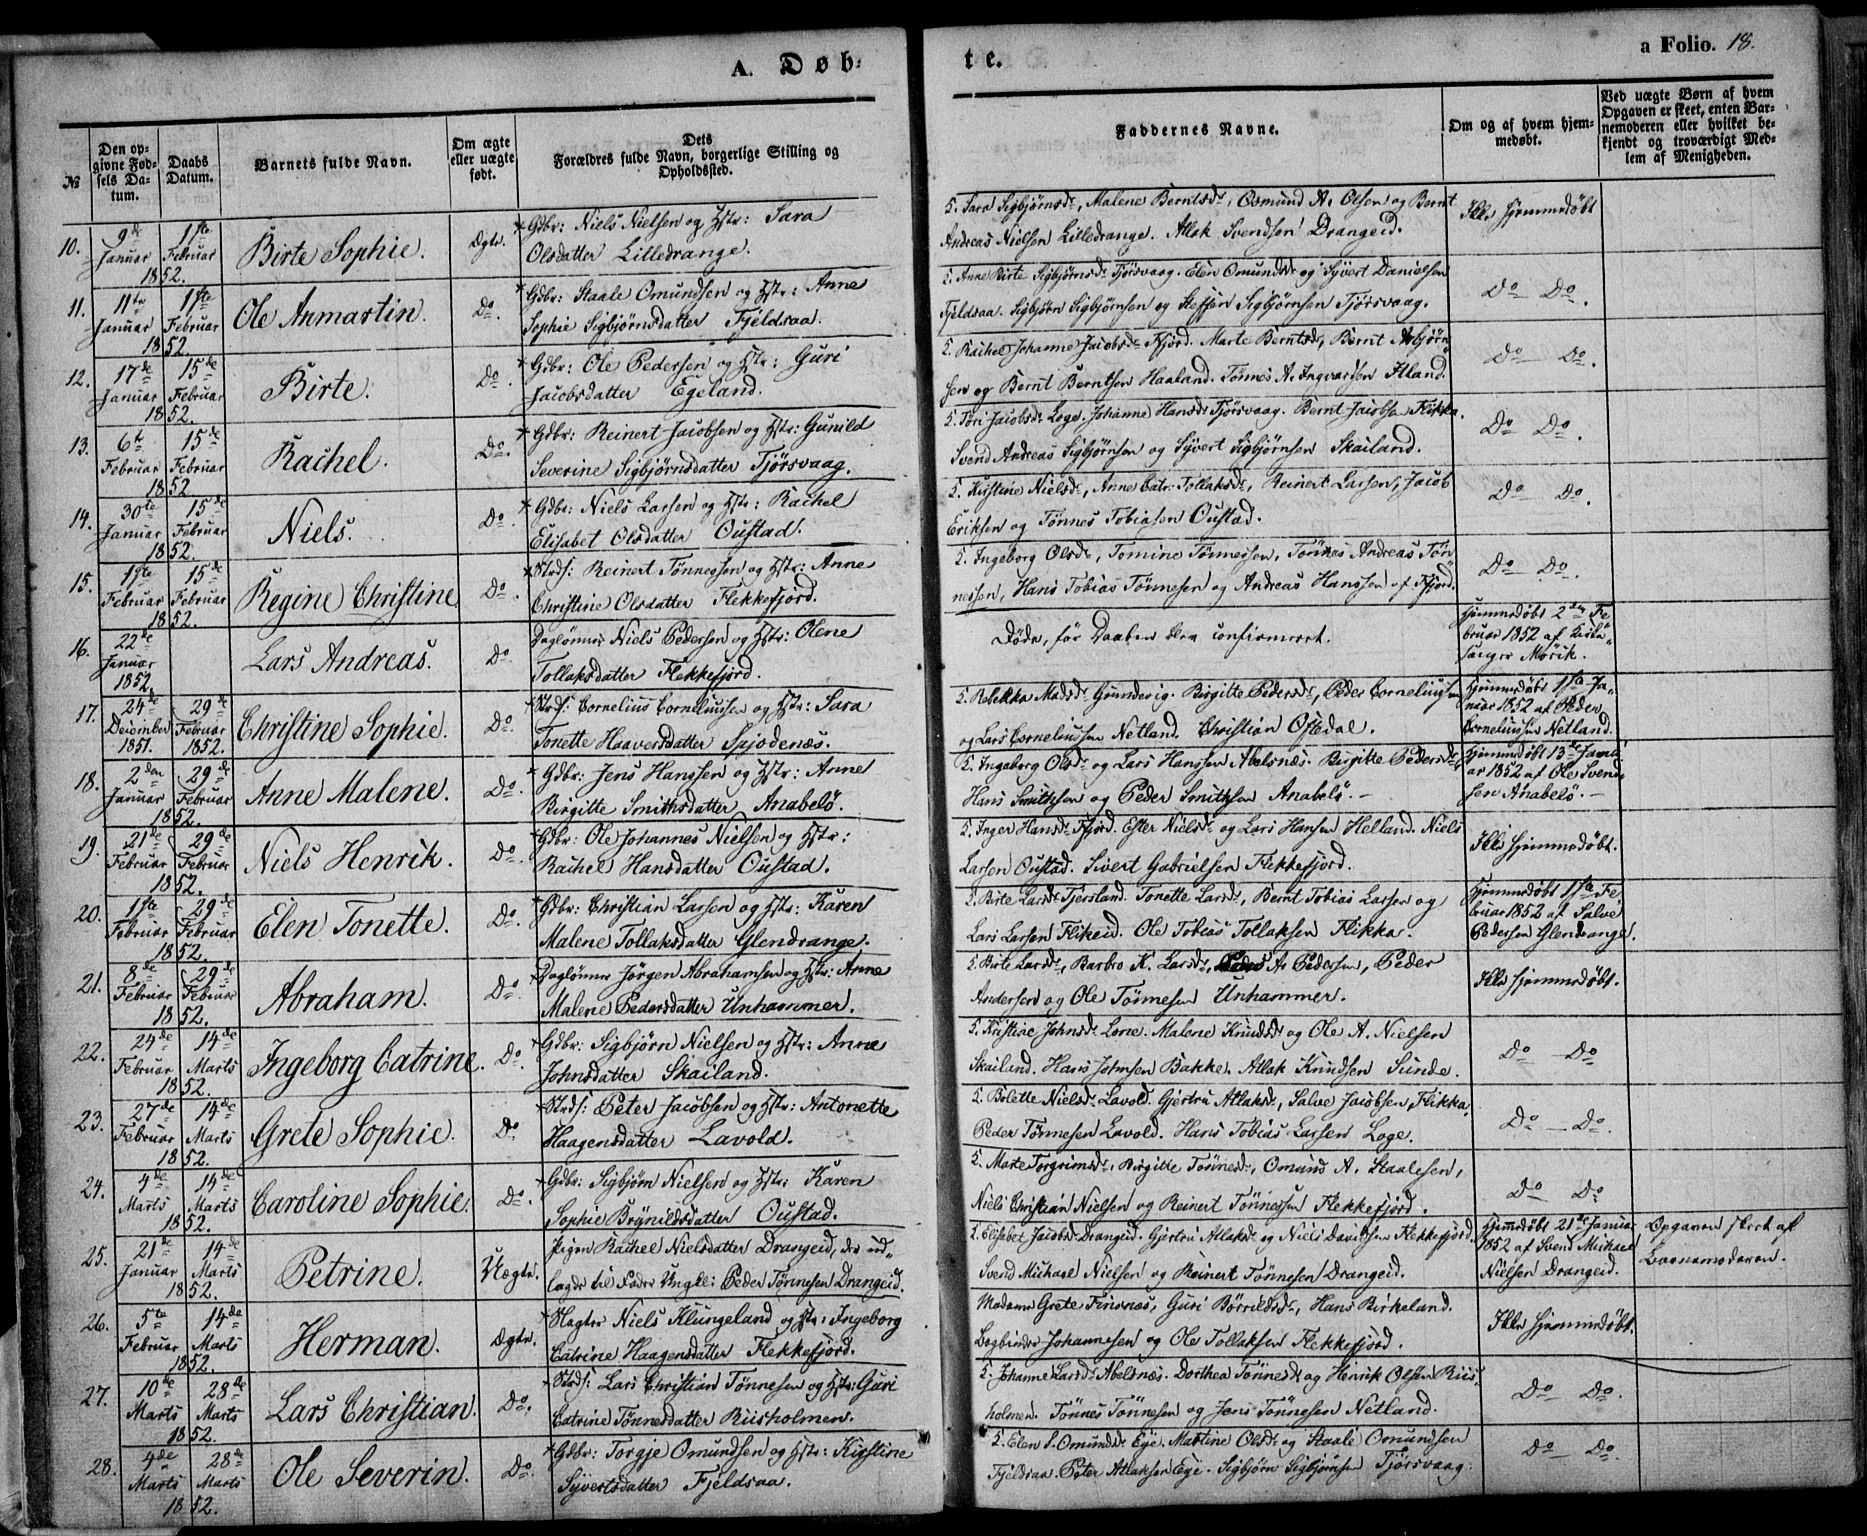 A. Døb-
te.
a Folio. 18.
№
Den op-
givne Fød-
sels Da-
tum.
Daabs
Datum.
Barnets fulde Navn.
Om ægte
eller uægte
født.
Dets
Forældres fulde Navn, borgerlige Stilling og
Opholdssted.
Faddernes Navne.
Om og af hvem hjem-
medøbt.
Ved uægte Børn af hvem
Opgaven er skeet, enten Bar-
nemoderen eller hvilket be-
kjendt og troværdigt Med-
lem af Menigheden.
10. 9de Januar 1852. 1ste Februar
Birte Sophie. Ægte.
Gdbr: Niels Nielsen og Hstr: Sara
Olsdatter Lilledrange.
5. Sara Sigbjørnsdr, Malene Berntsdr, Osmund A. Olsen og Bernt
Andreas Nielsen Lilledrange. Atlak Svendsen Drangeid.
Ikke hjemmedøbt
11. 11te Januar 1852. 1ste Februar
Ole Anmartin. Do.
Gdbr: Staale Omundsen og Hstr: Anne
Sophie Sigbjørnsdatter Fjeldsaa.
5. Anne Birte Sigbjørnsdr Tjørsvaag. Elen Omundsdr og Syvert Danielsen
Fjeldsaa. Sigbjørn Sigbjørnsen og Steffen Sigbjørnsen Tjørsvaag.
Do Do.
12. 17de Januar 1852. 15de Februar
Birte. Do.
Gdbr: Ole Pedersen og Hstr: Guri
Jacobsdatter Egeland.
5. Rachel Johanne Jacobsdr Fjord. Marte Berntsdr, Bernt Asbjørn-
sen og Bernt Berntsen Haaland. Tønnes A. Ingvarsen Fland.
Do Do.
13. 6te Februar 1852 15de Februar
Rachel. Do.
Gdbr: Reinert Jacobsen og Hstr: Gunild
Severine Sigbjørnsdatter Tjørsvaag.
5. Tøri Jacobsdr Loge. Johanne Hansdr Tjørsvaag. Bernt Jacobsen Flikka.
Svend Andreas Sigbjørnsen og Syvert Sigbjørnsen Skailand.
Do Do.
14. 30te Januar 1852. 15de Februar
Niels. Do.
Gdbr: Niels Larsen og Hstr: Rachel
Elisabet Olsdatter Oustad.
5. Kirstine Nielsdr, Anne Catr. Tollaksdr, Reinert Larsen, Jacob
Eriksen og Tønnes Tobiasen Oustad.
Do Do.
15. 1ste Februar 1852. 15de Februar
Regine Christine Do.
Strds: Reinert Tønnessen og Hstr: Anne
Christine Olsdatter Flekkefjord.
5. Ingeborg Olsdr, Tomine Tønnessen, Tønnes Andreas Tøn-
nessen, Hans Tobias Tønnesen og Andreas Hanssen af Fjord.
Do Do.
16. 22de Januar 1852
Lars Andreas. Do
Daglønner Niels Pedersen og Hstr: Olene
Tollaksdatter Flekkefjord.
Døde, før Daaben blev confirmeret.
Hjemmedøbt 2den Fe-
bruar 1852 af Kirke-
sanger Mørik.
17. 24de December 1851. 29de Februar 1852.
Christine Sophie. Do
Strds: Cornelius Corneliussen og Hstr: Sara
Tonette Haaversdatter Spjodenæs.
5. Rebekka Madsdr Grundevig. Birgitte Pedersdr, Peder Corneliussen
og Lars Corneliussen Netland. Christian Ostedal.
Hjemmedøbt 1ste Ja-
nuar 1852 af Peder
Corneliussen Netland.
18. 2den Januar 1852. 29de Februar
Anne Malene. Do.
Gdbr: Jens Hanssen og Hstr: Anne
Birgitte Smithsdatter Anabelø.
5. Ingeborg Olsdr og Lars Hanssen Abelsnæs. Birgitte Pedersdr,
Hans Smithsen og Peder Smithsen Anabelø.
Hjemmedøbt 13de Janu-
ar 1852 af Ole Svend-
sen Anabelø.
19. 21de Februar 1852. 29de Februar
Niels Henrik. Do.
Gdbr: Ole Johannes Nielsen og Hstr:
Rachel Hansdatter Oustad.
5. Inger Hansdr Fjord. Ester Nielsdr og Lars Hansen Helland. Niels
Larsen Oustad. Sivert Gabrielsen Flekkefjord.
Ikke hjemmedøbt.
20. 1ste Februar 1852. 29de Februar
Elen Tonette. Do.
Gdbr: Christian Larsen og Hstr: Karen
Malene Tollaksdatter Glendrange.
5. Birte Larsdr Tjersland. Tonette Larsdr, Bernt Tobias Larsen og
Lars Larsen Flikeid. Ole Tobias Tollaksen Flikka.
Hjemmedøbt 1ste Fe-
bruar 1852 af Salve
Pedersen Glendrange.
21. 8de Februar 1852. 29de Februar
Abraham. Do.
Daglønner Jørgen Abrahamsen og Hstr: Anne
Malene Pedersdatter Unhammer.
5. Birte Larsdr, Barbro K. Larsdr, A. Pedersen, Peder
Andersen og Ole Tønnesen Unhammer.
Ikke hjemmedøbt.
22. 24de Februar 1852. 14de Marts
Ingeborg Catrine. Do.
Gdbr: Sigbjørn Nielsen og Hstr: Anne
Johnsdatter Skailand.
5. Kristine Johnsdr Lone. Malene Knudsdr og Ole A. Nielsen
Skailand. Hans Johnsen Bakke. Atlak Knudsen Sunde.
Do Do
23. 27de Februar 1852. 14de Marts
Grete Sophie. Do
Strds: Peter Jacobsen og Hstr: Antonette
Haagensdatter Lavold.
5. Bolette Nielsdr Lavold. Gjertru Atlaksdr, Salve Jacobsen Flikka.
Peder Tønnesen Lavold. Hans Tobias Larsen Loge.
Do Do.
24. 4de Marts 1852. 14de Marts
Caroline Sophie. Do.
Gdbr: Sigbjørn Nielsen og Hstr: Karen
Sophie Brynildsdatter Oustad.
5. Marte Torgrimsdr, Birgitte Tønnesdr, Omund A. Staalesen,
Niels Christian Nielsen og Reinert Tønnessen Flekkefjord.
Do Do
25. 21de Januar 1852. 14de Marts
Petrine. Uægte.
Pigen Rachel Nielsdatter Drangeid, der ud-
lagde til Fader Ungk: Peder Tønnesen Drangeid.
5. Elisabet Jacobsdr Drangeid. Gjertru Atlaksdr og Niels Davidsen Flekkefjord.
Svend Michael Nielsen og Reinert Tønnesen Drangeid.
Hjemmedøbt 21de Januar
1852 af Svend Michael
Nielsen Drangeid.
Opgaven skeet af
Barnemoderen.
26. 5te Februar 1852. 14de Marts
Herman. Ægte.
Slagter Niels Klungeland og Hstr: Ingeborg
Catrine Haagensdatter Flekkefjord.
Madame Grete Finsnes, Guri Børrildsdr, Hans Birkeland.
Bogbinder Johannesen og Ole Tollaksen Flekkefjord.
Ikke hjemmedøbt.
27. 10de Marts 1852. 28de Marts
Lars Christian. Do.
Strds: Lars Christian Tønnesen og Hstr: Guri
Catrine Tønnesdatter Riisholmen.
5. Johanne Larsdr Abelsnæs. Dorthea Tønnesdr og Henrik Olsen Riis-
holmen. Tønnes Tønnesen og Jens Tønnesen Netland.
Do Do.
28. 4de Marts 1852. 28de Marts
Ole Severin. Do.
Gdbr: Torgje Omundsen og Hstr: Kirstine
Syvertsdatter Fjeldsaa.
5. Elen S. Omundsdr Eye. Martine Olsdr og Staale Omundsen
Fjeldsaa. Peter Atlaksen Ege. Sigbjørn Sigbjørnsen Tjørsvaag.
Do Do.